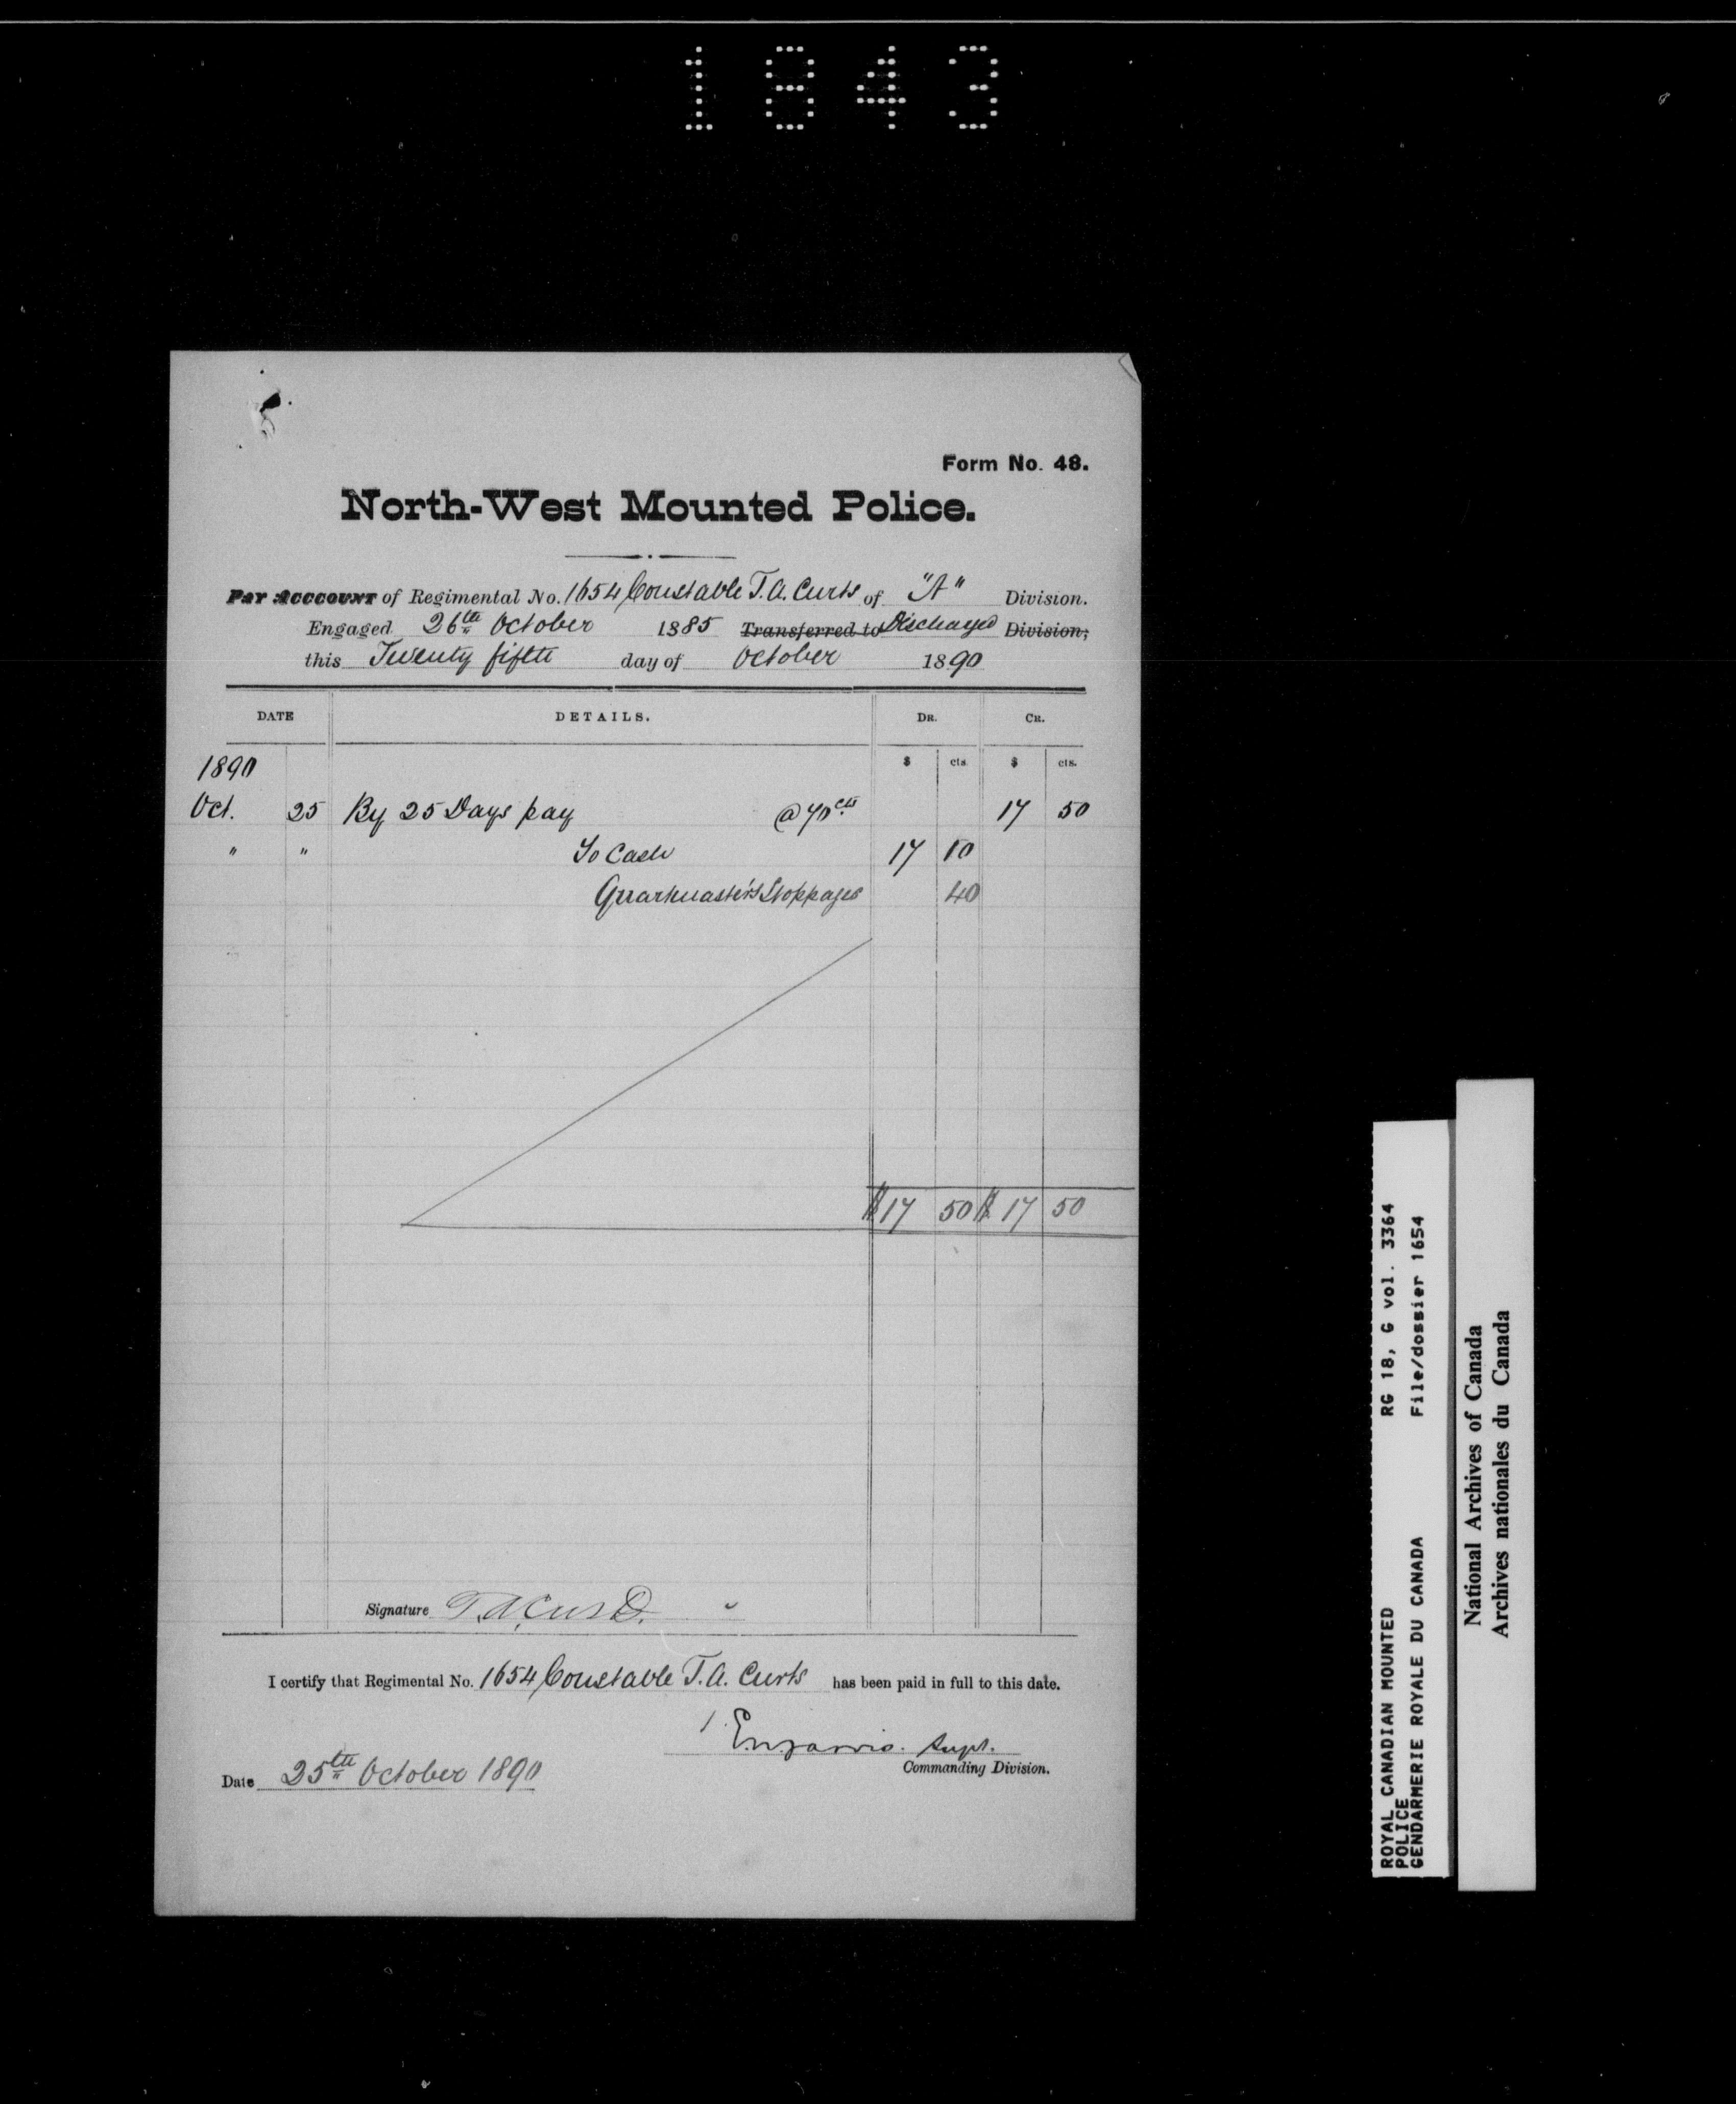 1843
Form No. 48.
North-West Mounted Police.
Pay Acccount of Regimental No. 1654 Constable T.A. Curts of "A" Division.
Engaged 26th October 1885 Transferred to Discharged Division;
this Twenty fifth day of October 1890
DATE DETAILS. DR. CR.
1890 $ cts. $ cts.
Oct. 25 By 25 Days pay @ 70 cts 17 50
" " To Cash 17 10
Quartmaster's Stoppages 40
$17 50 $17 50
Signature T.A. Curts
I certify that Regimental No. 1654 Constable T.A. Curts has been paid in full to this date.
Supt.
Commanding Division.
Date 25th October 1890
ROYAL CANADIAN MOUNTED RG 18, G vol. 3364
POLICE
GENDARMERIE ROYALE DU CANADA File/dossier 1654
National Archives of Canada
Archives nationales du Canada